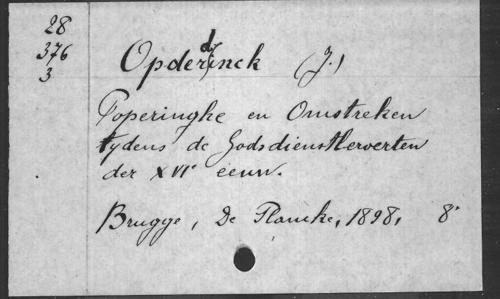 28
376
3
Opdedrinck (J.)
Poperinghe en Omstreken
tydens de Godsdienstberoerten
der XVIe eeuw.
Brugge, De Plancke, 1898, 8°